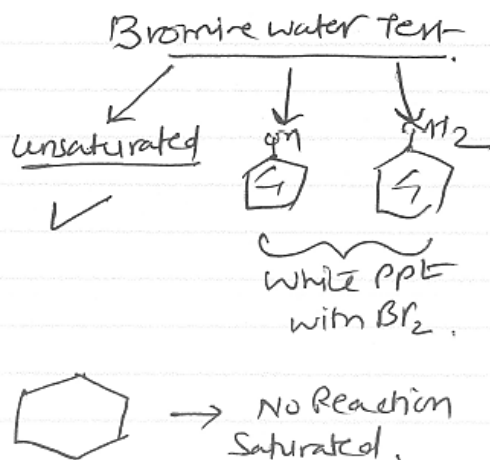 Bromine water Test.
unsaturated
OH
NH2
White ppt
with Br2.
→ No Reaction
Saturated.